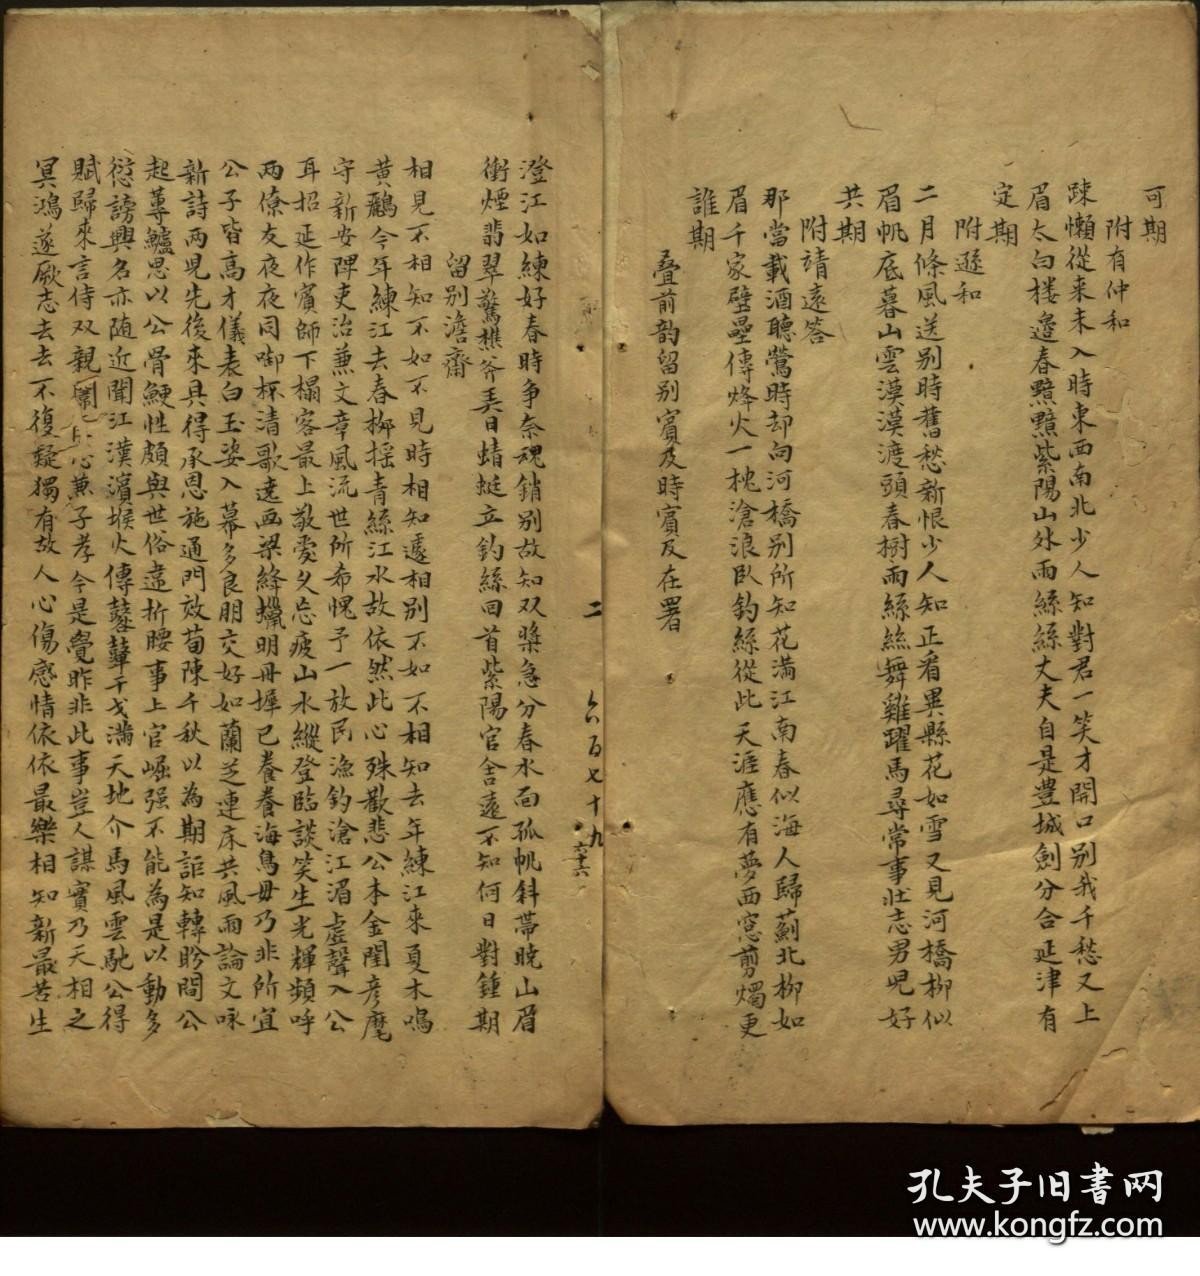 可期
附有仲和
疎懶從来未入時東西南北少人知對君一笑才開口别我千愁又上
眉太白楼邉春黯黯紫陽山外雨絲絲丈夫自是豊城劍分合延津有
定期
附遜和
二月條風送别時舊愁新恨少人知正看異縣花如雪又見河橋柳似
眉帆底暮山雲漠漠渡頭春樹雨絲絲舞雞躍馬尋常事壯志男児好
共期
附靖遠答
那當載酒聽鶯時却向河橋别所知花满江南春似海人歸薊北柳如
眉千家壁壘傳烽火一枕滄浪卧釣絲從此天涯應有夢西窓剪燭更
誰期
叠前韵留别賓及時賓及在署
澄江如練好春時争奈魂銷别故知双槳急分春水面孤帆斜帶晓山眉
衝煙翡翠驚樵斧美日蜻蜓立釣絲回首紫陽官舍遠不知何日對鍾期
留别澹齋
相見不相知不如不見時相知遽相别不如不相知去年練江來夏木鳴
黄鸝今年練江去春栁摇青絲江水故依然此心殊歡悲公本金閨彦麾
守新安陴吏治兼文章風流世所希愧予一放民漁釣滄江湄虚聲入公
耳招延作賓師下榻客最上敬愛久忘疲山水縱登臨談笑生光輝頻呼
两僚友夜夜同啣杯清歌遶画梁絳蠟明丹墀已養養海鳥毋乃非所宜
公子皆高才儀表白玉姿入幕多良朋交好如蘭芝連床共風雨論文咏
新詩两児先後來具得承恩施通門效荀陳千秋以為期詎知轉盻間公
起蓴鱸思以公骨鯁性頗與世俗違折腰事上官崛强不能為是以動多
愆謗興名亦随近聞江漢濱堠火傳鼛鼙干戈满天地介馬風雲馳公得
賦歸來言侍双親闈忠兼子孝今是覺昨非此事豈人謀實乃天相之
冥鴻遂厥志去去不復疑獨有故人心傷感情依依最樂相知新最苦生
二 六百七十九
六十六
孔夫子旧書网
www.kongfz.com